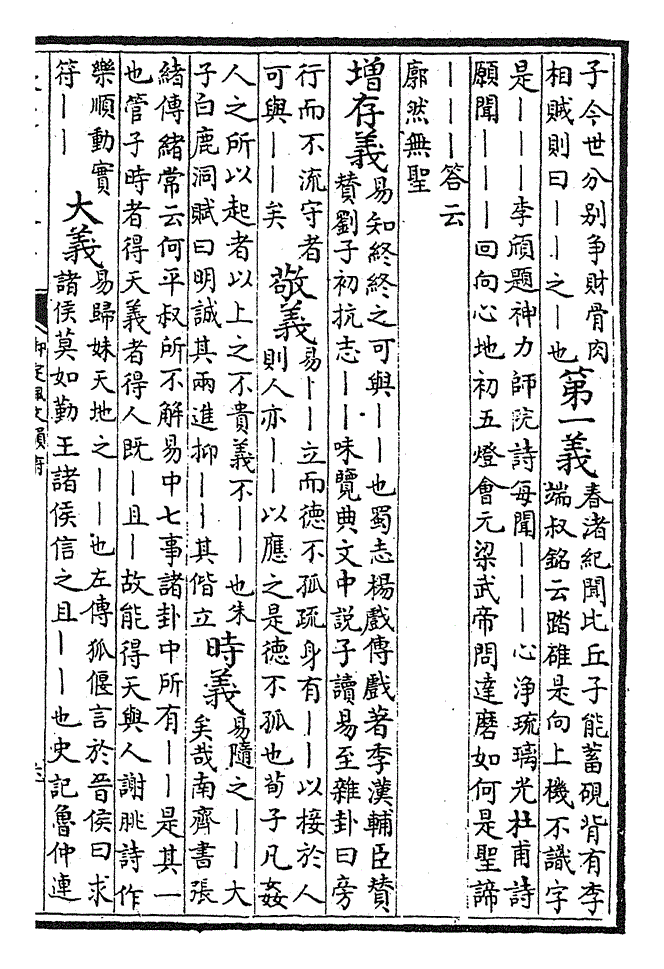 子今世分别争財骨肉
相賊則曰丨丨之丨也
第一義
春渚紀聞比丘子能蓄硯背有李
端叔銘云踏碓是向上機不識字
是丨丨丨李頎題神力師院詩每聞丨丨丨心浄琉璃光杜甫詩
願聞丨丨丨回向心地初五燈會元梁武帝問達磨如何是聖諦
丨丨丨答云
廓然無聖
增存義
易知終終之可與丨丨也蜀志楊戲傳戲著季漢輔臣賛
賛劉子初抗志丨丨味覽典文中説子讀易至雜卦曰旁
行而不流守者
可與丨丨矣
敬義
易丨丨立而德不孤疏身有丨丨以接於人
則人亦丨丨以應之是德不孤也荀子凡姦
人之所以起者以上之不貴義不丨丨也朱
子白鹿洞賦曰明誠其兩進抑丨丨其偕立
時義
易隨之丨丨大
矣哉南齊書張
緒傳緒常云何平叔所不解易中七事諸卦中所有丨丨是其一
也管子時者得天義者得人既丨且丨故能得天與人謝朓詩作
樂順動實
符丨丨
大義
易歸妹天地之丨丨也左傳狐偃言於晉侯曰求
諸侯莫如勤王諸侯信之且丨丨也史記魯仲連